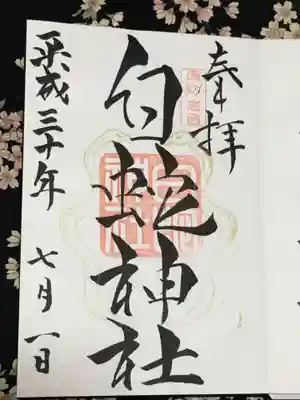 奉拝
白蛇神社
平成三十年 七月一日